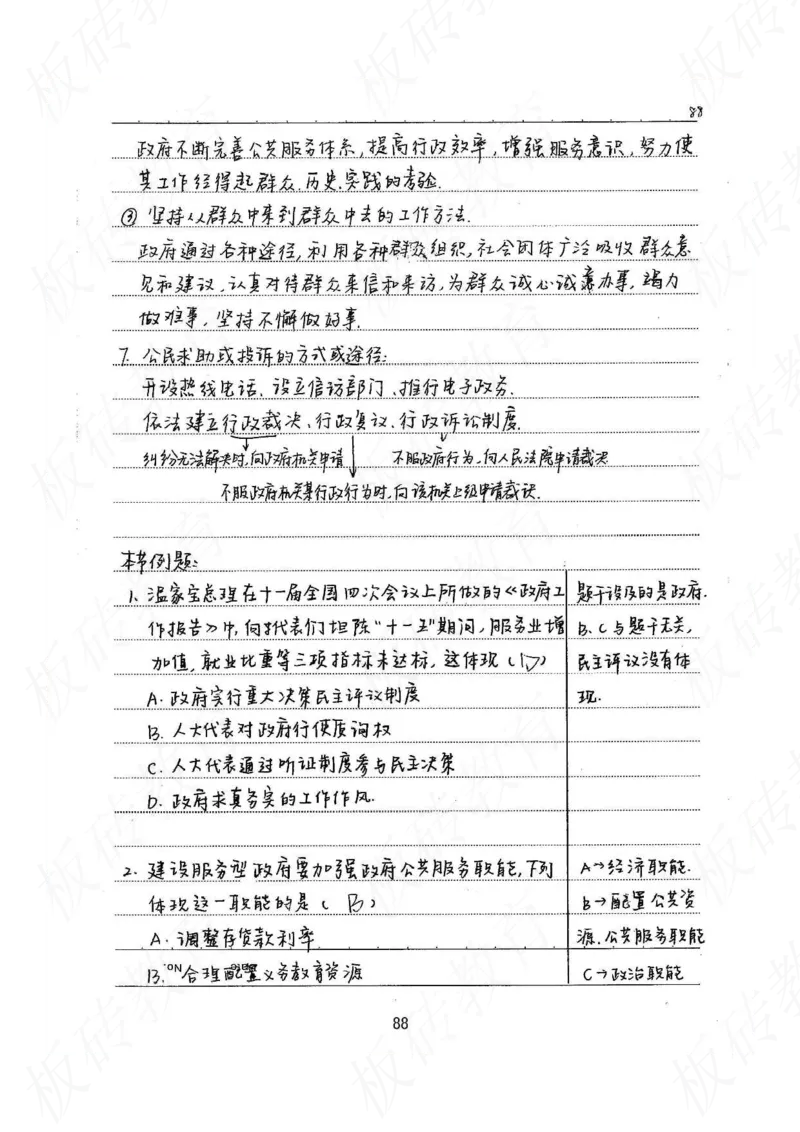 88
政府不断完善公共服务体系,提高行政效率,增强服务意识,努力使
其工作经得起群众.历史.实践的考验.
③ 坚持从群众中来到群众中去的工作方法.
政府通过各种途径,利用各种群众组织,社会团体广泛吸收群众意
见和建议,认真对待群众来信和来访,为群众诚心诚意办事,竭力
做难事,坚持不懈做好事.
7. 公民求助或投诉的方式或途径:
开设热线电话、设立信访部门、推行电子政务.
依法建立行政裁决、行政复议、行政诉讼制度.
纠纷无法解决时,向政府机关申请 不服政府行为,向人民法院申请裁决
不服政府机关某行政行为时,向该机关上级申请裁决.
本节例题:
1. 温家宝总理在十一届全国四次会议上所做的《政府工 题干涉及的是政府.
作报告》中,向代表们坦陈"十一五"期间,服务业增 B、C与题干无关,
加值,就业比重等三项指标未达标,这体现(D) 民主评议没有体
A. 政府实行重大决策民主评议制度 现.
B. 人大代表对政府行使质询权
C. 人大代表通过听证制度参与民主决策
D. 政府求真务实的工作作风.
2. 建设服务型政府要加强政府公共服务职能,下列 A→经济职能.
体现这一职能的是( B ) B→配置公共资
A. 调整存贷款利率 源.公共服务职能
B. 合理配置义务教育资源 C→政治职能
88
板砖教育